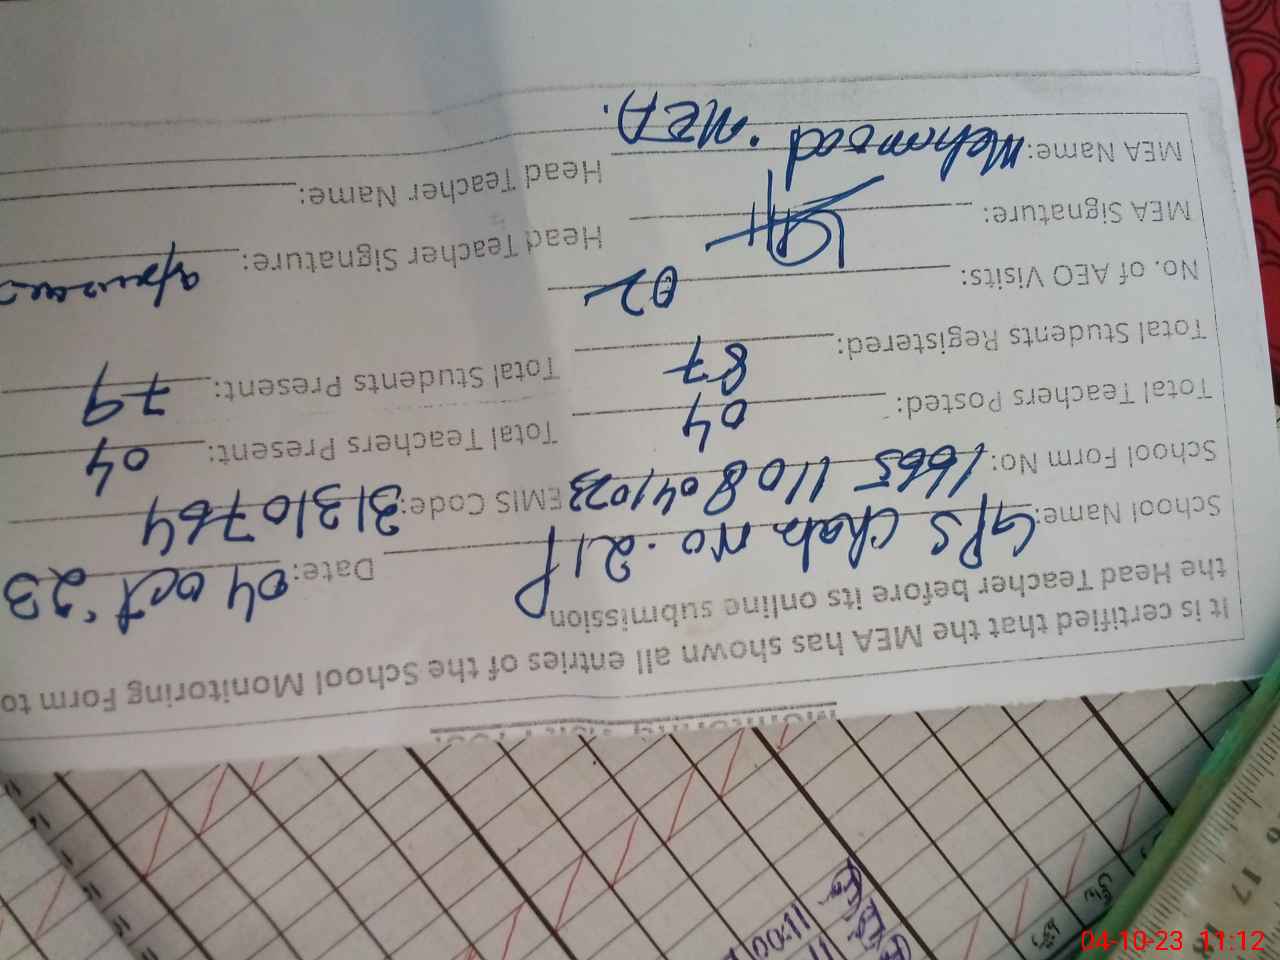 Monitoring Visit Proof
It is certified that the MEA has shown all entries of the School Monitoring Form to
the Head Teacher before its online submission
School Name: GPS Chak No. 21P Date: 04 oct 23
School Form No: 1665 1108 041023 EMIS Code: 31310764
Total Teachers Posted: 04 Total Teachers Present: 04
Total Students Registered: 87 Total Students Present: 79
No. of AEO Visits: 02
MEA Signature: Head Teacher Signature:
MEA Name: Mehmood MEA). Head Teacher Name:
11:00
17
04-10-23 11:12